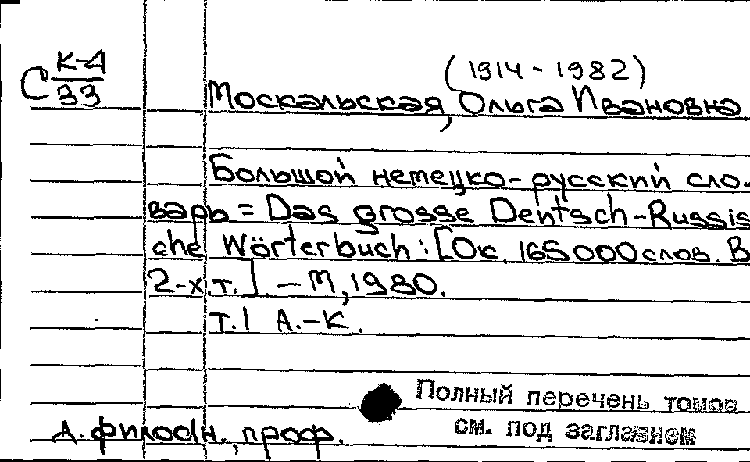 С К-4/33
(1914-1982)
Москальская, Ольга Ивановна
Большой немецко-русский сло-
варь = Das grosse Deutsch-Russis
che Wörterbuch: [Ок. 165000 слов. В
2-х т.] - М, 1980.
т.1 А.-К.
Полный перечень томов
см. под заглавием
А. филос н., проф.